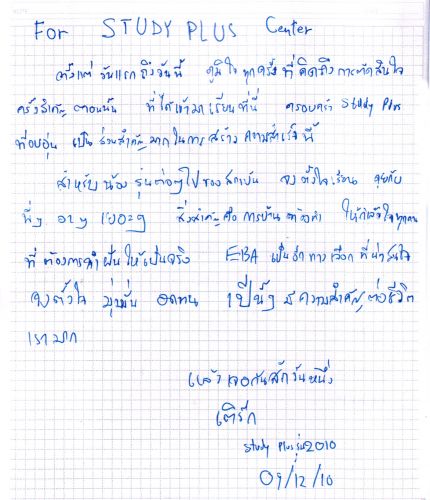 For STUDY PLUS Center
ตั้งแต่วันแรกถึงวันนี้ ภูมิใจทุกครั้งที่คิดถึงการตัดสินใจ
ครั้งสำคัญตอนนั้น ที่ได้เข้ามาเรียนที่นี่ ครอบครัว Study Plus
ที่อบอุ่น เป็นส่วนสำคัญมากในการสร้างความสำเร็จนี้
สำหรับน้องรุ่นต่อๆไปของสถาบัน จงตั้งใจเรียน คุยกับ
พี่ๆ อาๆ เยอะๆ สิ่งสำคัญคือการบ้าน ให้กำลังใจทุกคน
ที่ต้องการทำฝันให้เป็นจริง EBA เป็นอีกทางเลือกที่น่าสนใจ
จงตั้งใจ มุ่งมั่น อดทน มีความสำคัญต่อชีวิต
เรามาก
แล้วเจอกันสักวันหนึ่ง
Study Plusรุ่น2010
09/12/10